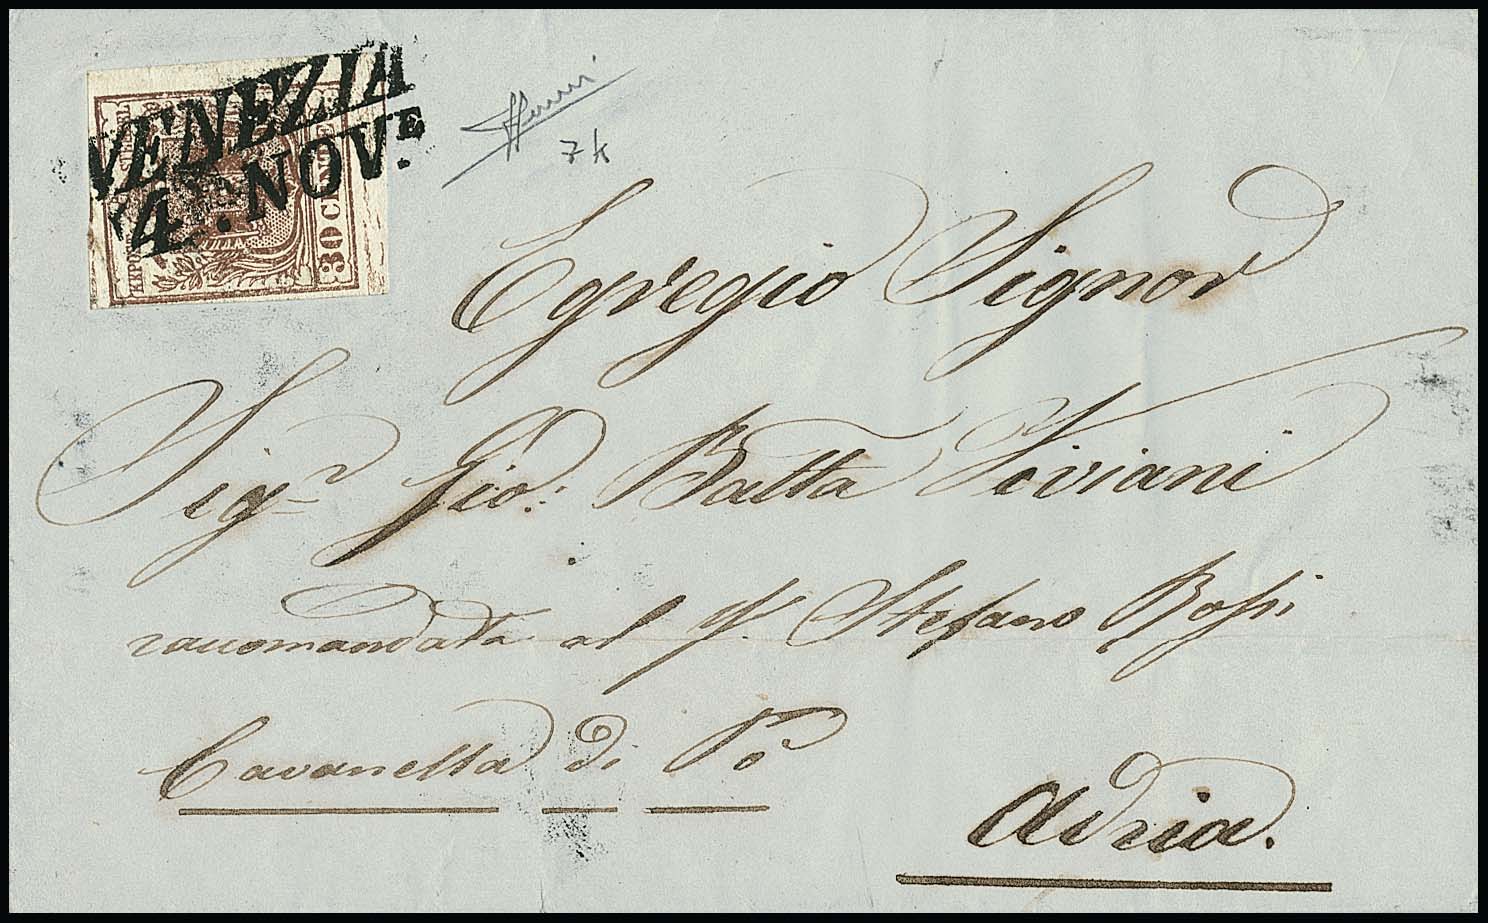 VENEZIA
4. NOV.E
30 CENTES
7 k
Egregio Signor
Sig.r Gio: Batta Viviani
raccomandata al S.r Stefano Rossi
Cavanella di Po
Adria.